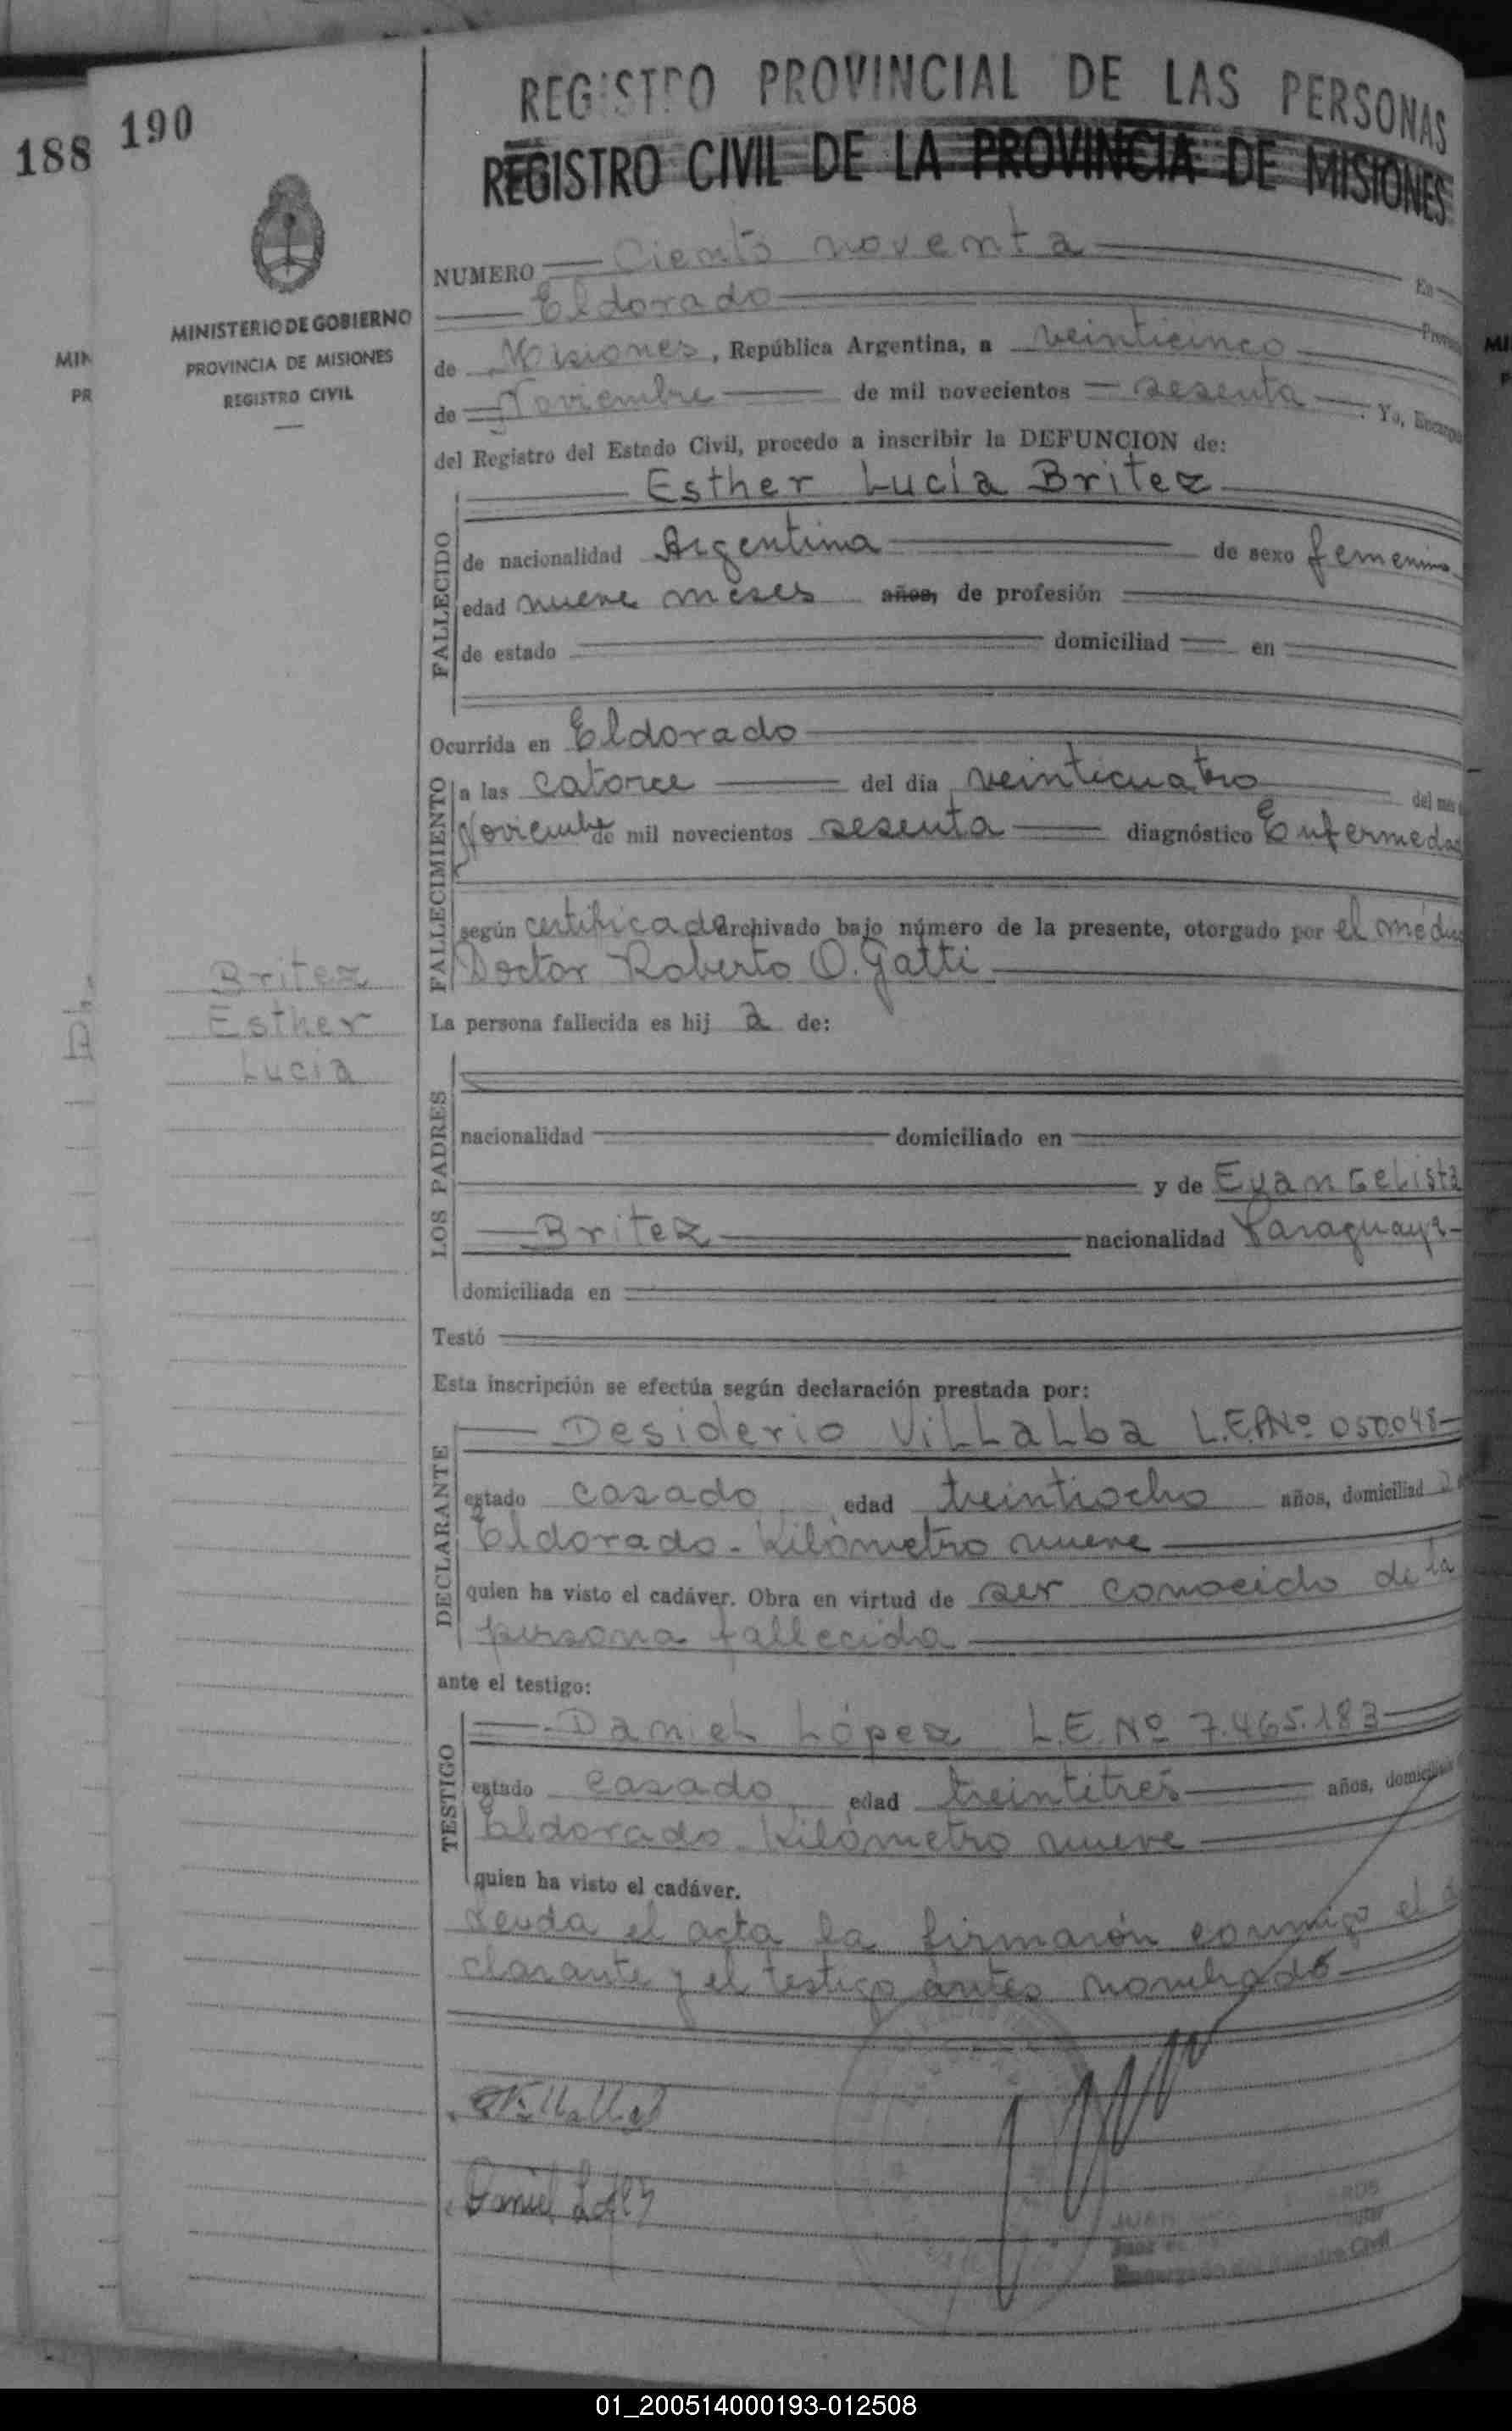 188
190
REGISTRO PROVINCIAL DE LAS PERSONAS
REGISTRO CIVIL DE LA PROVINCIA DE MISIONES
MINISTERIO DE GOBIERNO
PROVINCIA DE MISIONES
REGISTRO CIVIL
MIN
PR
NUMERO Ciento noventa En
Eldorado
de Misiones, República Argentina, a veinticinco
de Noviembre de mil novecientos sesenta. Yo, Encarg
del Registro del Estado Civil, procedo a inscribir la DEFUNCION de:
FALLECIDO
Esther Lucía Britez
de nacionalidad Argentina de sexo femenino
edad nueve meses años, de profesión
de estado domiciliad en
Ocurrida en Eldorado
FALLECIMIENTO
a las catorce del día veinticuatro del mes
Noviembre de mil novecientos sesenta diagnóstico Enfermedad
según certificado archivado bajo número de la presente, otorgado por el médico
Doctor Roberto O. Gatti
Britez
Esther
Lucía
La persona fallecida es hij a de:
LOS PADRES
nacionalidad domiciliado en
y de Evangelista
Britez nacionalidad Paraguaya
domiciliada en
Testó
Esta inscripción se efectúa según declaración prestada por:
DECLARANTE
Desiderio Villalba Nº 050.048
estado casado edad treintiocho años, domiciliad
Eldorado - Kilómetro nueve
quien ha visto el cadáver. Obra en virtud de ser conocido de la
persona fallecida
ante el testigo:
TESTIGO
Daniel López L.E. Nº 7.465.183
estado casado edad treintitrés años,
Eldorado - Kilómetro nueve
quien ha visto el cadáver.
Leuda el acta la firmarón conmigo el
clarante y el testigo ántes nombrado
Villalba
Daniel López
JUAN
Encargado del Registro Civil
01_200514000193-012508